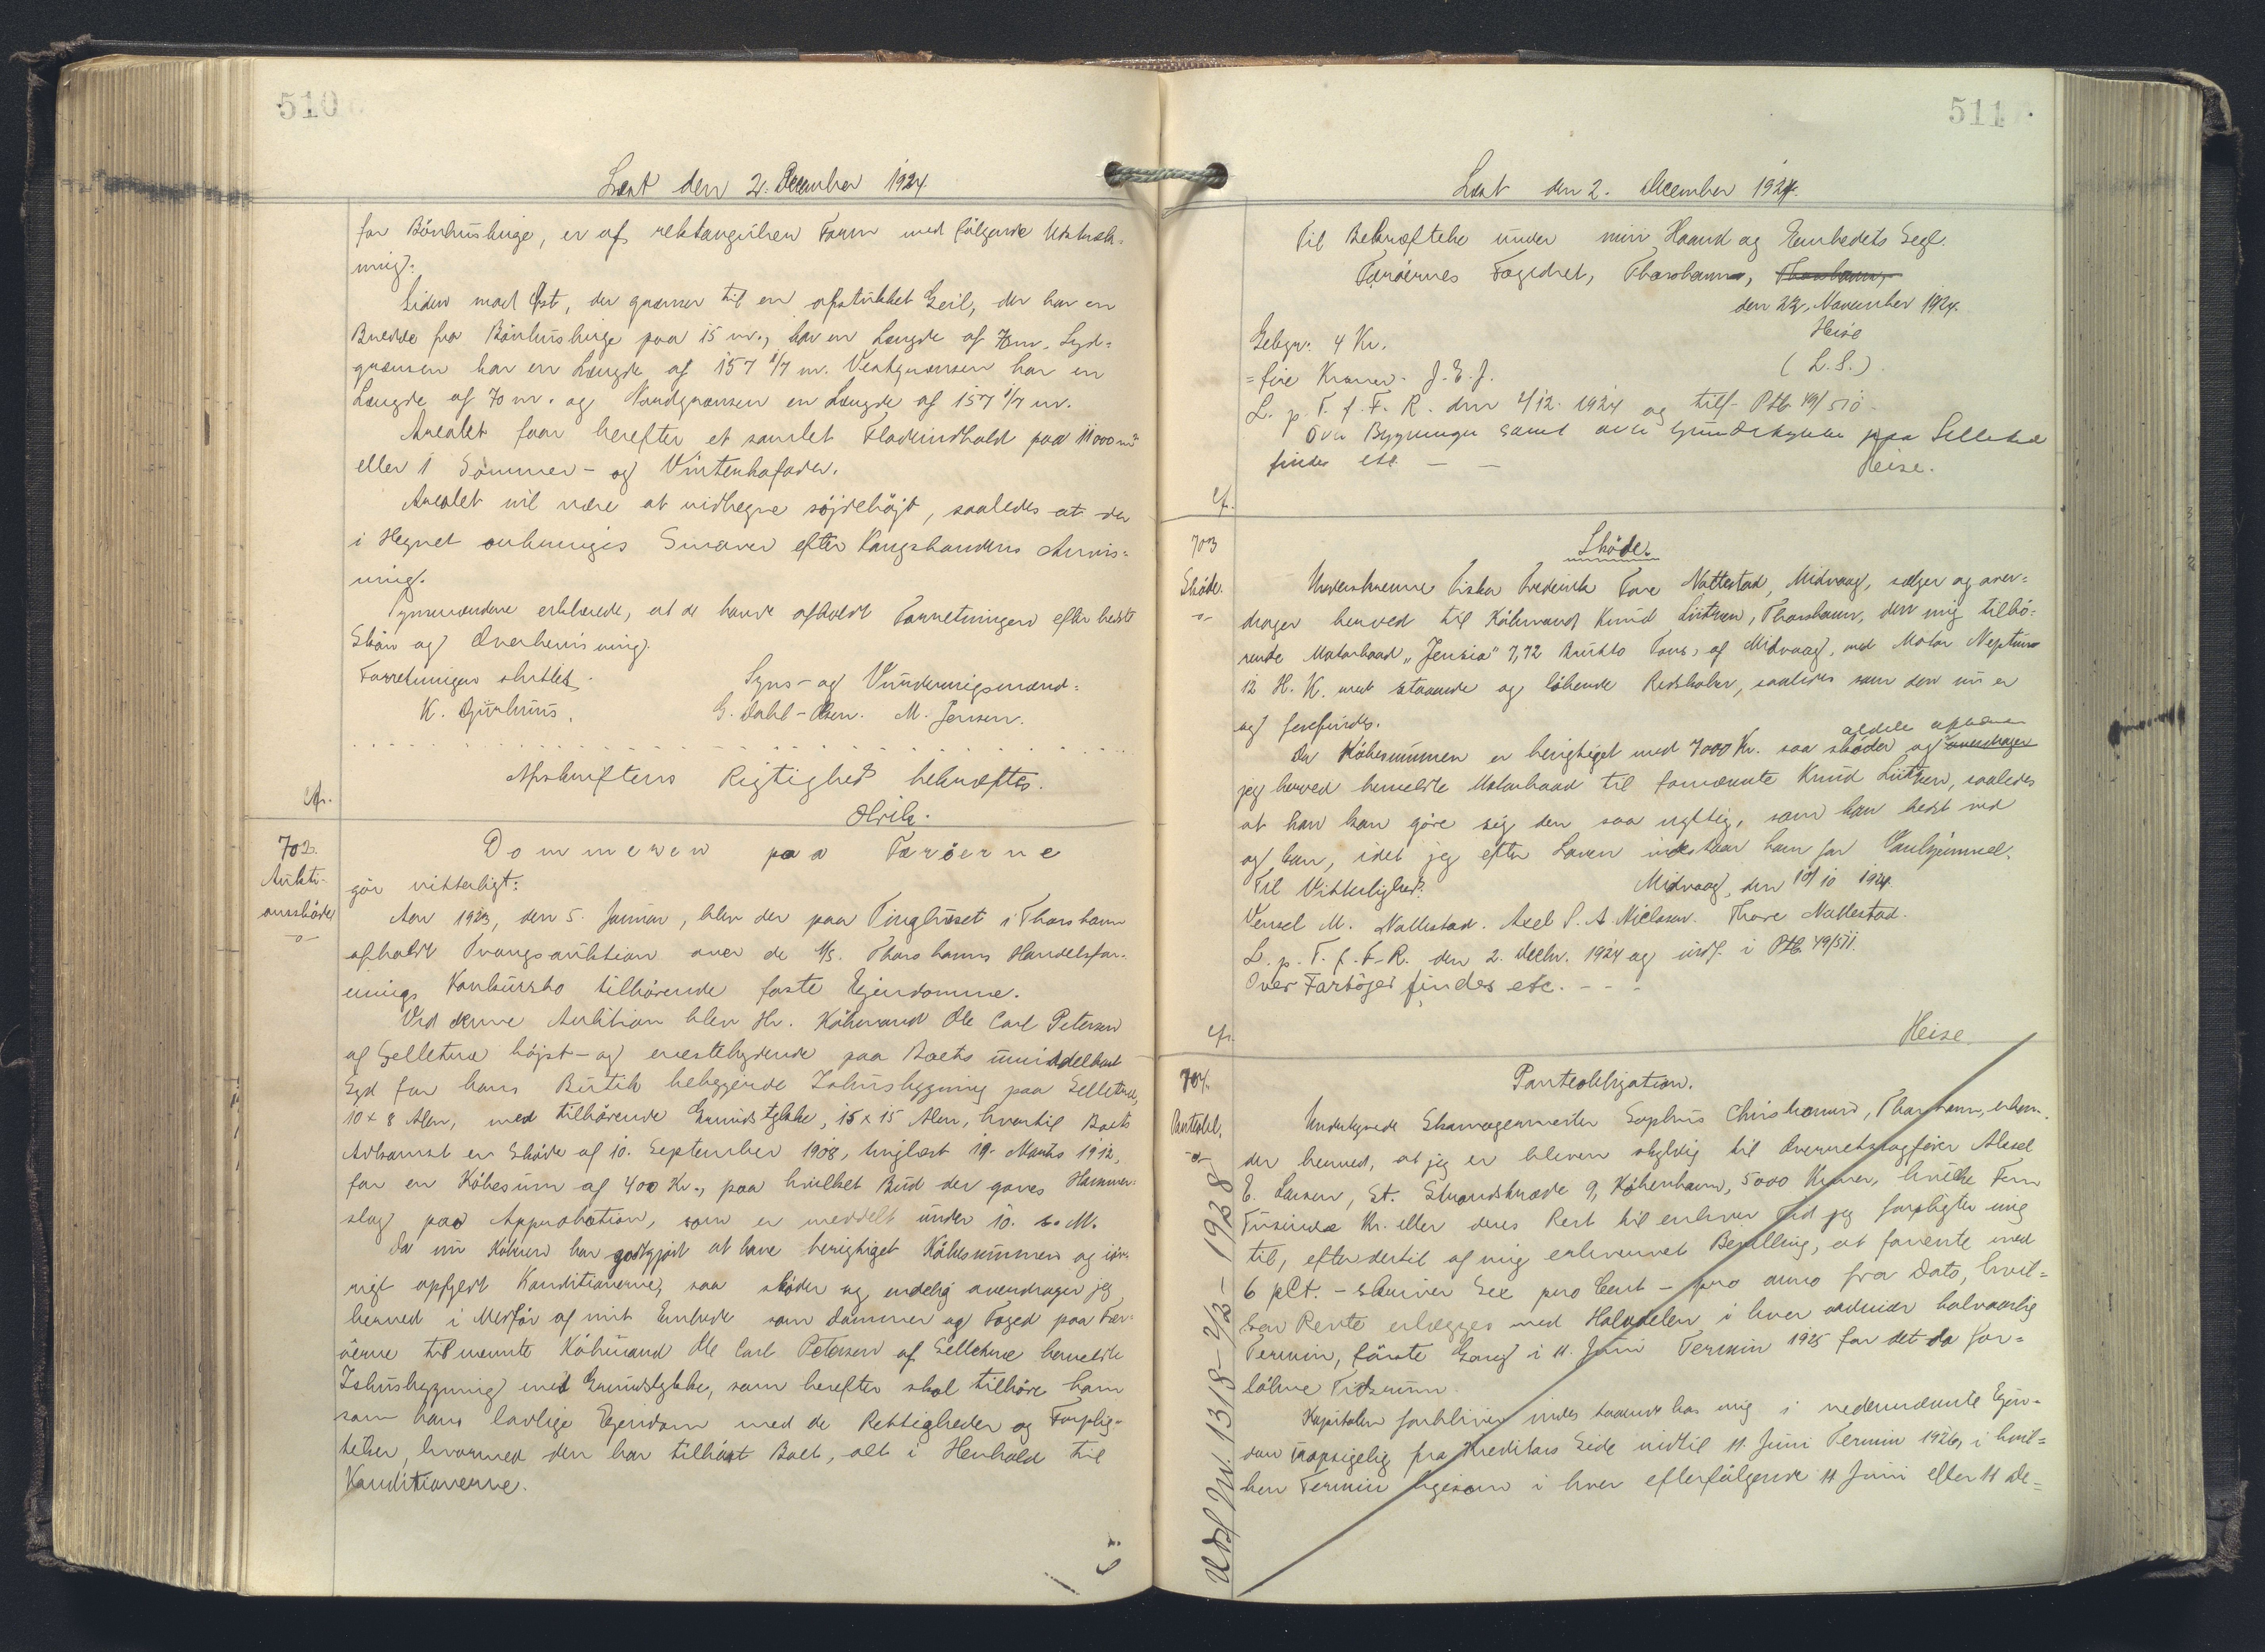 510
Læst den 2. December 1924.
for Bönhushuge, er af rektangulær Form med følgende Udstræk-
ning:
Siden mod Øst, der grænser til en afstukket Geil, der har en
Bredde fra Bönhushuge paa 15 m., har en Længde af 70 m. Syd-
grænsen har en Længde af 157 1/7 m. Vestgrænsen har en
Længde af 70 m. og Nordgrænsen en Længde af 157 1/7 m.
Arealet faar herefter et samlet Fladeindhold paa 11000 m²
eller 1 Sommer- og Vinterkofoder.
Arealet vil være at indhegne söjdehöjt, saaledes at der
i Hegnet anbringes Smøver efter Kongsbondens Anvis-
ning.
Synsmændene erklærede, at de havde afholdt Forretningen efter bedste
Skön og Overbevisning.
Forretningen sluttet.
Syns- og Vurderingsmænd:
K. Djurhuus.
G. Dahl-Olsen. M. Jensen.
Afskriftens Rigtighed bekræftes.
Cfr.
Olrik.
702.
Aukti-
onsskøde
Dommeren paa Færöerne
gör vitterligt:
Aar 1923, den 5. Januar, blev der paa Tinghuset i Thorshavn
afholdt Tvangsauktion over de A/S. Thorshavns Handelsfor-
enings Konkursbo tilhörende faste Ejendomme.
Ved denne Auktion blev Hr. Köbmand Ole Carl Petersen
af Selletræ höjst- og enestebydende paa Boets umiddelbart
Syd for hans Butik beliggende Islhusbygning paa Selletræ,
10 x 8 Alen, med tilhörende Grundstykke, 15 x 15 Alen, hvortil Boets
Adkomst er Sköde af 10. September 1908, tinglæst 19. Marts 1912,
for en Köbesum af 400 Kr., paa hvilket Bud der gaves Hammer-
slag paa Approbation, som er meddelt under 10. s. M.
Da nu Köberen har godtgjort at have berigtiget Köbesummen og iöv-
rigt opfyldt Konditionerne, saa sköder og endelig overdrager jeg
herved i Medför af mit Embede som Dommer og Foged paa Fær-
öerne til nævnte Köbmand Ole Carl Petersen af Selletræ bemeldte
Ishusbygning med Grundstykke, som herefter skal tilhöre ham
som hans lovlige Ejendom med de Rettigheder og Forplig-
telser, hvormed den har tilhört Boet, alt i Henhold til
Konditionerne.
511
Læst den 2. December 1924.
Til Bekræftelse under min Haand og Embedets Segl.
Færöernes Fogedret, Thorshavn, Thorshavn,
den 22. November 1924.
Heise
(L.S.)
Gebyr: 4 Kr.
= fire Kroner. J.E.J.
L. p. T. f. F. R. den 2/12 1924 og tilf. Ptb. 49/510.
Over Bygningen samt over Grundstykke paa Selletræ
findes etc. — —
Heise.
Cfr.
703
Sköde.
Sköde.
Underskrevne Fisker Frederik Tore Nattestad, Midvaag, sælger og over-
drager herved til Köbmand Knud Lützen, Thorshavn, den mig tilhö-
rende Motorbaad "Jensia" 7,72 Brutto Tons, af Midvaag, med Motor Neptun
12 H. K. med staaende og löbende Redskaber, saaledes som den nu er
og forefindes.
Da Köbesummen er berigtiget med 7000 Kr. saa sköder og overdrager
jeg herved bemeldte Motorbaad til fornævnte Knud Lützen, saaledes
at han kan göre sig den saa nyttig, som han bedst ved
og kan, idet jeg efter Loven indestaar ham for Vanhjemmel.
Til Vitterlighed:
Midvaag, den 10/10 1924.
Wensel M. Nattestad. Axel P. A. Niclasen. Thore Nattestad.
L. p. T. f. F. R. den 2. Decbr. 1924 og indf. i Ptb. 49/511.
Over Fartöjet findes etc. - - -
Heise
Cfr.
704.
Panteobl.
Panteobligation.
Undertegnede Skomagermester Sophus Christiansen, Thorshavn, erken-
der herved, at jeg er bleven skyldig til Overretssagförer Aksel
E. Larsen, St. Strandstræde 9, Köbenhavn, 5000 Kroner, hvilke Fem
Tusinde Kr. eller deres Rest til enhver Tid jeg forpligter mig
til, efter dertil af mig erhvervet Bevilling, at forrente med
6 pCt. - skriver Sex pro Cent - pro anno fra Dato, hvil-
ken Rente erlægges med Halvdelen i hver ordinær halvaarlig
Termin, förste Gang i 11. Juni Termin 1925 for det da for-
löbne Tidsrum.
Kapitalen forbliver indestaaende hos mig i nedennævnte Ejen-
dom uopsigelig fra Kreditors Side indtil 11. Juni Termin 1926, i hvil-
ken Termin ligesom i hver efterfölgende 11 Juni eller 11 De-
Udsl Nr. 1318-2/3-1928